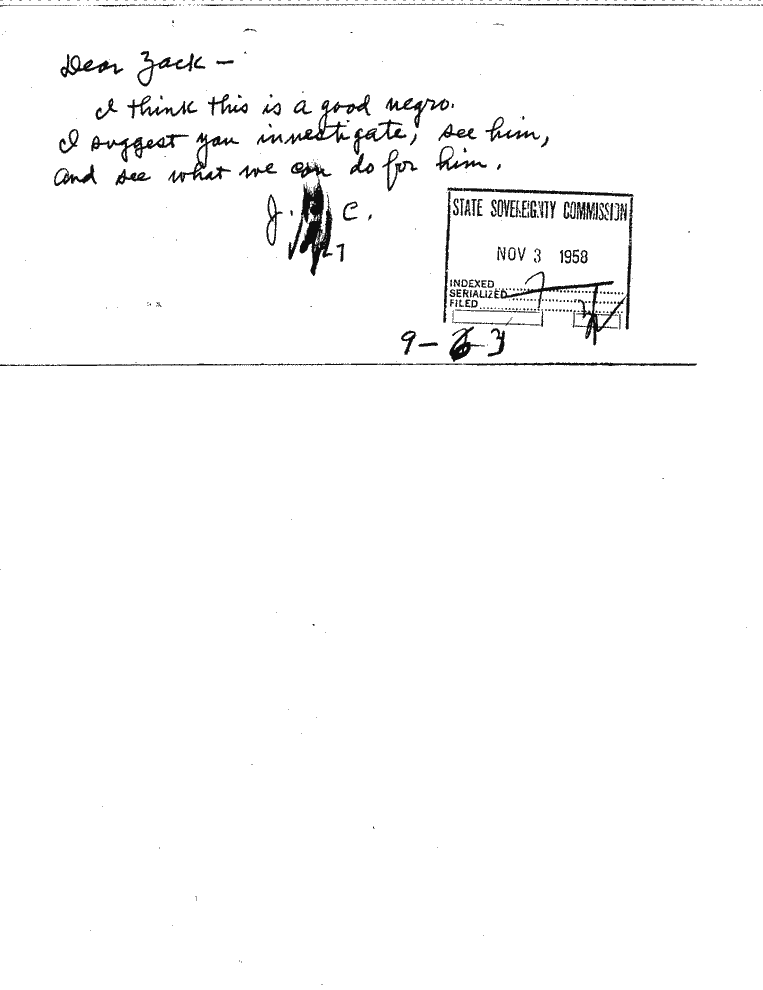 Dear Zack —
I think this is a good negro.
I suggest you investigate, see him,
and see what we can do for him.
J. C.
STATE SOVEREIGNTY COMMISSION
NOV 3 1958
INDEXED
SERIALIZED
FILED
9-